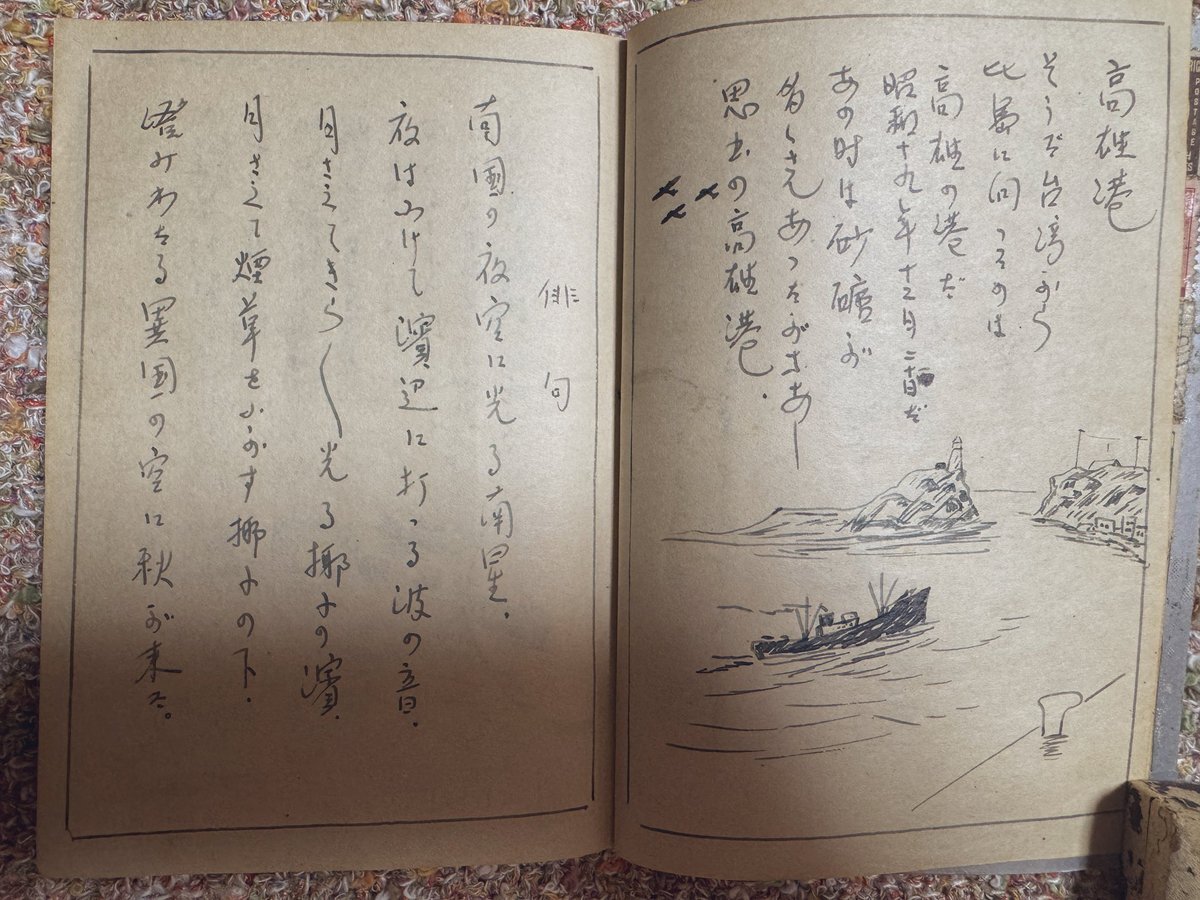 高雄港
そうだ台湾から
比島に向ったのは
高雄の港だ
昭和十九年十二月二十日だ
あの時は砂糖が
多くさんあったがなあー
思出の高雄港.
俳句
南国の夜空に光る南星.
夜はふけて濱辺に打つる波の音.
月さえてきら〱光る椰子の濱.
月さえて煙草をふかす椰子の下.
澄みわたる異国の空に秋が来た。
POSTAGE